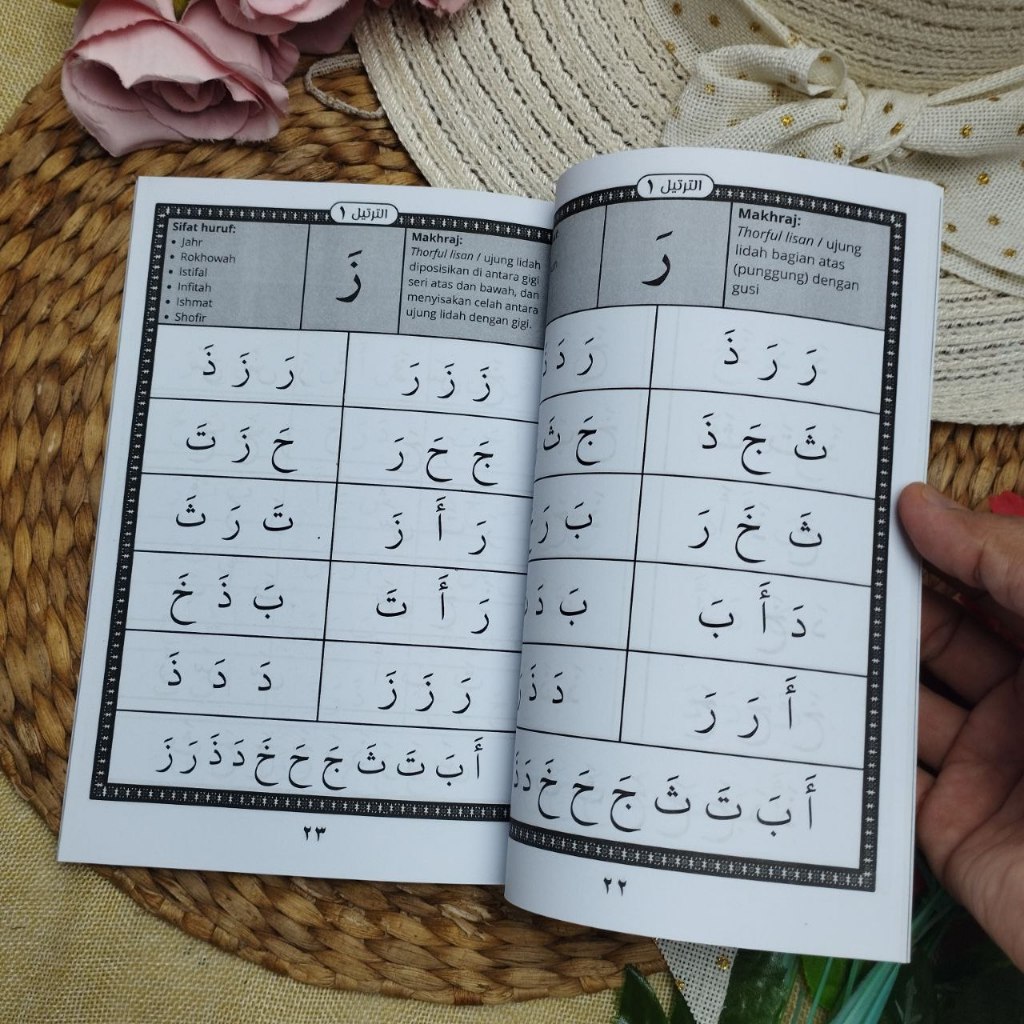 الترتيل ١
Makhraj:
Thorful lisan / ujung
lidah bagian atas
(punggung) dengan
gusi
رَ
رَ رَ ذَ رَ دَ
ثَ جَ ذَ جَ ثَ
ثَ خَ رَ بَ رَ
دَ أَ بَ بَ دَ
أَ رَ رَ دَ ذَ
أَ بَ تَ ثَ جَ حَ خَ دَ
٢٢
الترتيل ١
Makhraj:
Thorful lisan / ujung lidah
diposisikan di antara gigi
seri atas dan bawah, dan
menyisakan celah antara
ujung lidah dengan gigi.
زَ
Sifat huruf:
• Jahr
• Rokhowah
• Istifal
• Infitah
• Ishmat
• Shofir
زَ زَ رَ رَ زَ ذَ
جَ حَ رَ حَ زَ تَ
رَ أَ زَ تَ رَ ثَ
رَ أَ تَ بَ ذَ خَ
رَ زَ زَ دَ دَ ذَ
أَ بَ تَ ثَ جَ حَ خَ دَ ذَ رَ زَ
٢٣